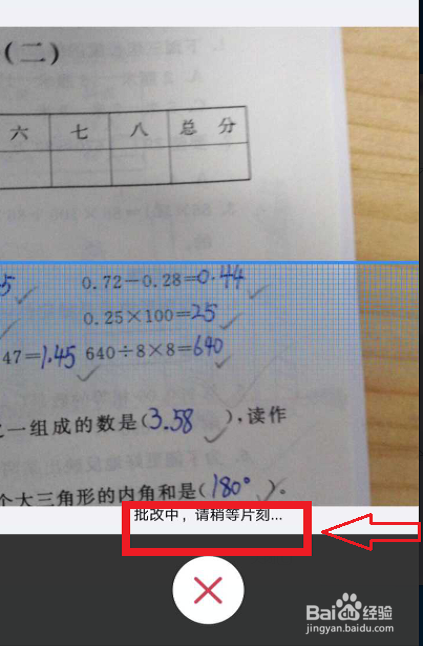 （二）
六 七 八 总 分
5 0.72－0.28=0.44
0.25×100=25
47=1.45 640÷8×8=640
之一组成的数是（3.58），读作
个大三角形的内角和是（180°）。
批改中，请稍等片刻...
Baidu经验
jingyan.baidu.com